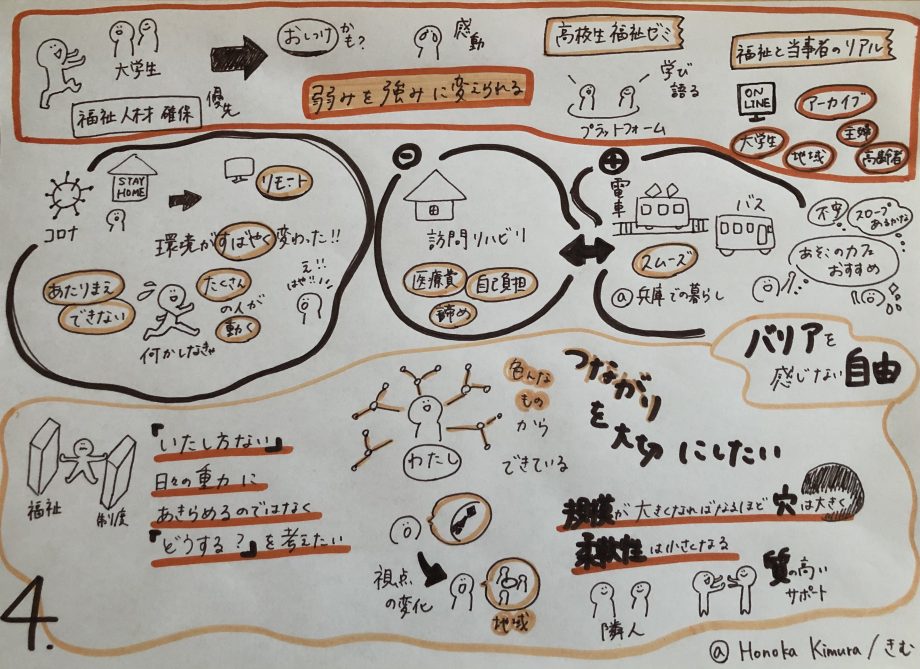 大学生
福祉人材確保
優先
おしつけ
かも?
感動
弱みを強みに変えられる
高校生福祉ゼミ
学び
語る
プラットフォーム
福祉と当事者のリアル
ON
LINE
アーカイブ
大学生
地域
主婦
高齢者
コロナ
STAY
HOME
リモート
環境がすばやく変わった!!
あたりまえ
できない
たくさん
の人が
動く
何かしなきゃ
え!!
はや!!
訪問リハビリ
医療費
自己負担
諦め
電車
バス
スムーズ
@兵庫での暮らし
不安
スロープ
あるかな
あそこのカフェ
おすすめ
バリアを
感じない自由
福祉
制度
『いたし方ない』
日々の重力に
あきらめるのではなく
『どうする?』を考えたい
わたし
色んな
もの
から
できている
つながり
を大切にしたい
視点
の変化
地域
規模が大きくなればなるほど穴は大きく
柔軟性は小さくなる
隣人
質の高い
サポート
4.
@ Honoka Kimura/きむ